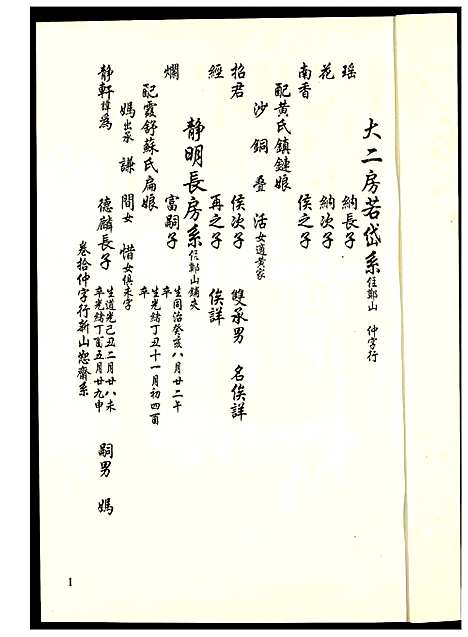 大二房若岱系 住鄭山 仲字行
瑶 納長子
花 納次子
南香 侯之子
配黃氏鎮鏈娘
沙 銅 叠 活 女適黃家
招君 侯次子 雙承男 名俟詳
經 再之子 俟詳
靜明長房系 住鄭山鋪尖
爛 富嗣子 生同治癸亥八月廿二午
卒
配霞舒蘇氏扁娘 生光緒丁丑十一月初四酉
卒
媽 出承 謙 間女 惜 女俱未字
靜軒 諱為 德麟長子 生道光己丑二月廿八未
卒光緒丁酉五月廿九申 嗣男 媽
卷拾仲字行新山恕齋系
1